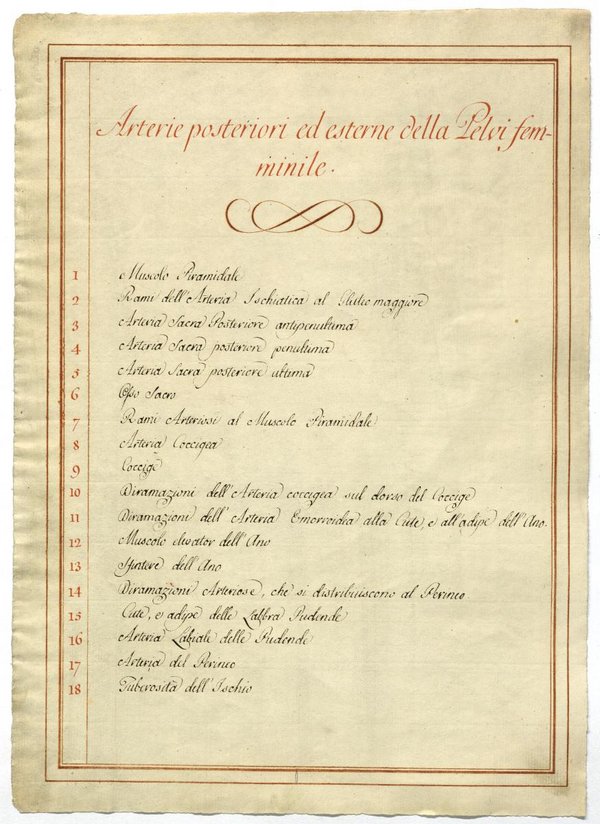 Arterie posteriori ed esterne della Pelvi fem-
minile.
1 Muscolo Piramidale
2 Rami dell'Arteria Ischiatica al Gluteo maggiore
3 Arteria Sacra Posteriore antipenultima
4 Arteria Sacra posteriore penultima
5 Arteria Sacra posteriore ultima
6 Osso Sacro
7 Rami Arteriosi al Muscolo Piramidale
8 Arteria Coccigea
9 Coccige
10 Diramazioni dell'Arteria coccigea sul dorso del Coccige
11 Diramazioni dell'Arteria Emorroidra alla Cute, e all'adipe dell'Ano.
12 Muscolo elevator dell'Ano
13 Sfintere dell'Ano
14 Diramazioni Arteriose, che si distribuiscono al Perineo
15 Cute, e adipe delle Labbra Pudende
16 Arteria Labiale delle Pudende
17 Arteria del Perineo
18 Tuberosità dell'Ischio